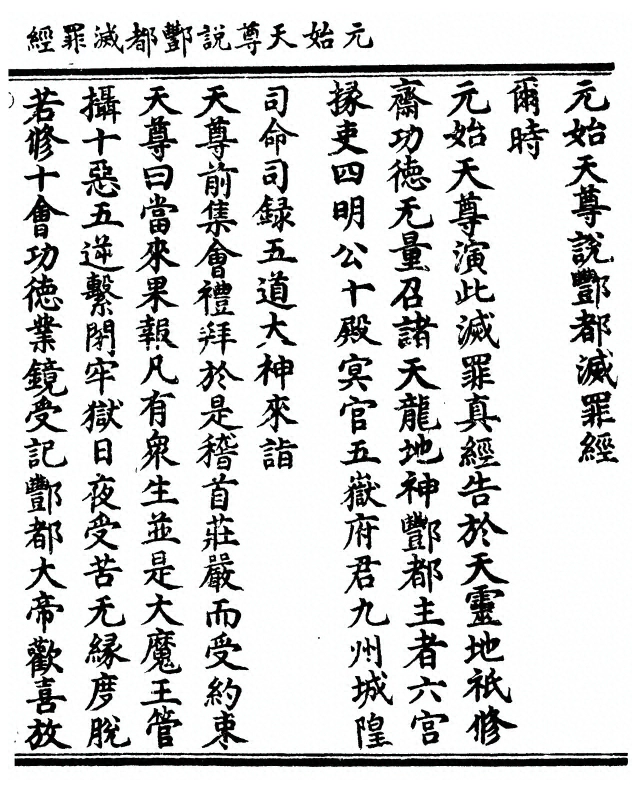 元始天尊說酆都滅罪經
元始天尊說酆都滅罪經
爾時
元始天尊演此滅罪真經告於天靈地祇修
齋功徳无量召諸天龍地神酆都主者六宫
掾吏四明公十殿冥官五嶽府君九州城隍
司命司録五道大神來詣
天尊前集會禮拜於是稽首莊嚴而受約束
天尊曰當來果報凡有衆生並是大魔王管
攝十惡五逆繫閉牢獄日夜受苦无縁度脫
若修十會功徳業鏡受記酆都大帝歡喜放